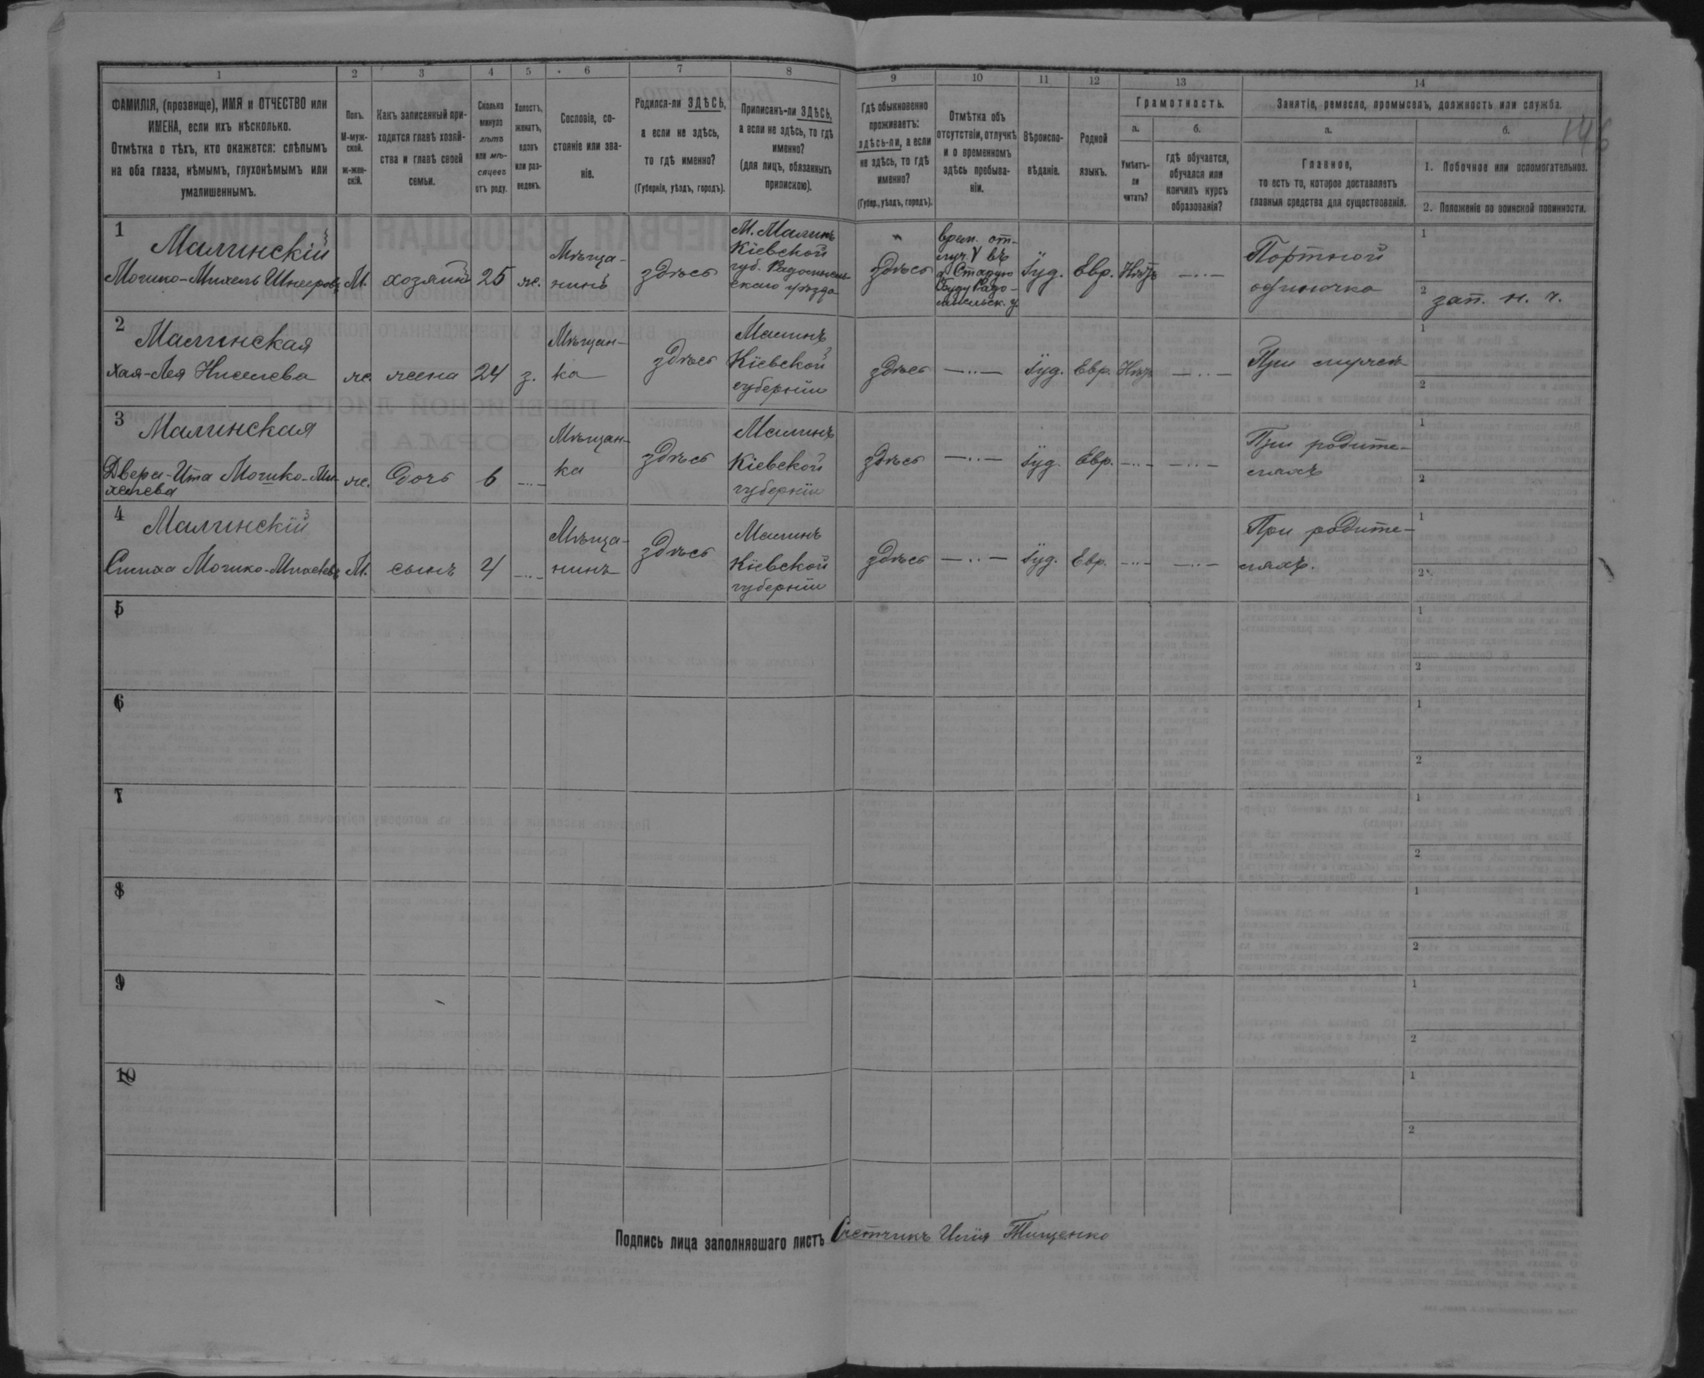 1 2 3 4 5 6 7 8 9 10 11 12 13 14
ФАМИЛІЯ, (прозвище), ИМЯ и ОТЧЕСТВО или
ИМЕНА, если ихъ нѣсколько.
Отмѣтка о тѣхъ, кто окажется: слѣпымъ
на оба глаза, нѣмымъ, глухонѣмымъ или
умалишеннымъ.
Полъ.
М-муж-
ской.
ж-жен-
скій.
Какъ записанный при-
ходится главѣ хозяй-
ства и главѣ своей
семьи.
Сколько
минуло
лѣтъ
или мѣ-
сяцевъ
отъ роду.
Холостъ,
женатъ,
вдовъ
или раз-
веденъ.
Сословіе, со-
стояніе или зва-
ніе.
Родился-ли ЗДѢСЬ,
а если не здѣсь,
то гдѣ именно?
(Губернія, уѣздъ, городъ).
Приписанъ-ли ЗДѢСЬ,
а если не здѣсь, то гдѣ
именно?
(для лицъ, обязанныхъ
припискою).
Гдѣ обыкновенно
проживаетъ:
здѣсь-ли, а если
не здѣсь, то гдѣ
именно?
(Губер., уѣздъ, городъ).
Отмѣтка объ
отсутствіи, отлучкѣ
и о временномъ
здѣсь пребыва-
ніи.
Вѣроиспо-
вѣданіе.
Родной
языкъ.
Грамотность.
а.
Умѣетъ-
ли
читать?
б.
гдѣ обучается,
обучался или
кончилъ курсъ
образованія?
Занятіе, ремесло, промыселъ, должность или служба.
а.
Главное,
то есть то, которое доставляетъ
главныя средства для существованія.
б.
1. Побочное или вспомогательное.
2. Положеніе по воинской повинности.
146
1
Малинскій
М.
хозяинъ
25
ж.
Мѣща-
нинъ
здѣсь
М. Малинъ
Кіевской
губ. Радомысль-
скаго уѣзда
здѣсь
Іуд.
Евр.
Нѣтъ
Портной
одиночка
1
2 зап. н. ч.
2
Малинская
Хая-Лея
ж.
жена
24
з.
Мѣщан-
ка
здѣсь
Малинъ
Кіевской
губерніи
здѣсь
Іуд.
Евр.
Нѣтъ
При мужѣ
1
2
3
Малинская
Двера-Ита Мошко-Ми-
хелева
ж.
дочь
6
Мѣщан-
ка
здѣсь
Малинъ
Кіевской
губерніи
здѣсь
Іуд.
Евр.
При родите-
ляхъ
1
2
4
Малинскій
М.
сынъ
4
Мѣща-
нинъ
здѣсь
Малинъ
Кіевской
губерніи
здѣсь
Іуд.
Евр.
При родите-
ляхъ.
1
2
5
1
2
6
1
2
7
1
2
8
1
2
9
1
2
10
1
2
Подпись лица заполнявшаго листъ Счетчикъ Илія Тищенко